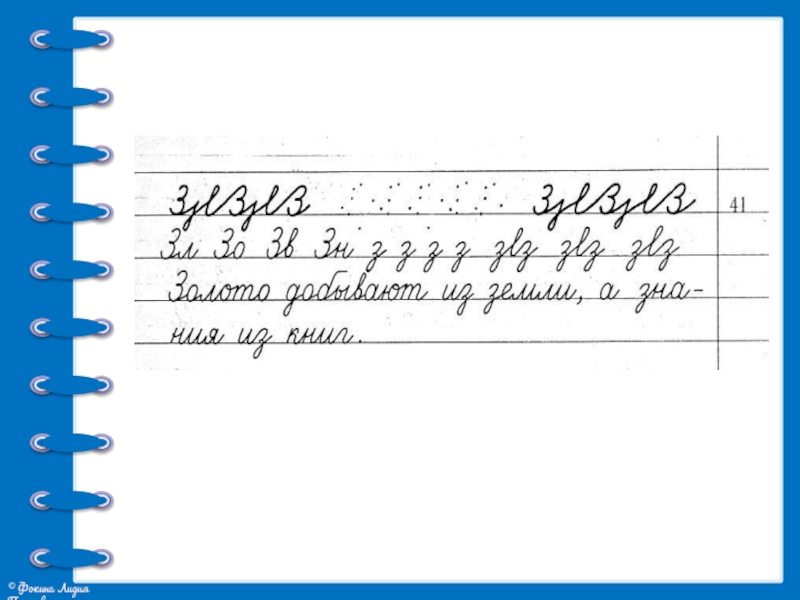 ЗзlЗзlЗ ЗзlЗзlЗ 41
Зл Зо Зв Зн з з з з зlз зlз зlз
Золото добывают из земли, а зна-
ния из книг.
© Фокина Лидия